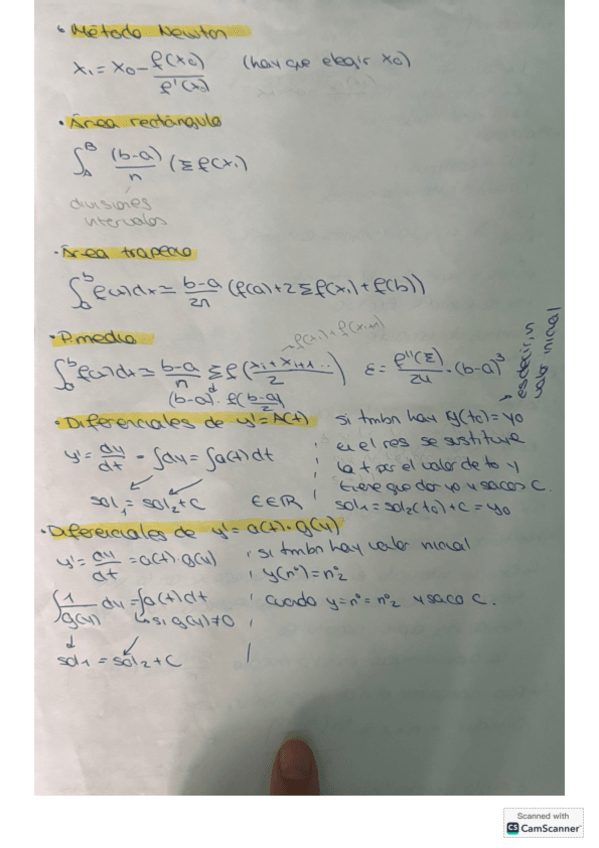 • Método Newton
x₁ = x₀ - f(x₀)/f'(x₀) (hay que elegir x₀)
• Área rectángulo
∫ᴬᴮ (b-a)/n (Σ f(xᵢ)
divisiones
intervalos
• Área trapecio
∫ f(x)dx = b-a/2n (f(a) + 2Σ f(xᵢ) + f(b))
• P. medio
∫ f(x)dx = b-a/n Σ f(xᵢ + xᵢ₊₁.../2) ε = f''(ξ)/24 · (b-a)³
(b-a) · f(b-a/2)
es decir, si
valor inicial
• Diferenciales de y' = A(t)
y' = dy/dt = ∫dy = ∫a(t)dt
sol₁ = sol₂ + C C∈ℝ
si tmbn hay y(t₀) = y₀
en el res se sustituye
la t por el valor de t₀ y
tiene que dar y₀ y sacas C.
sol₁ = sol₂(t₀) + C = y₀
• Diferenciales de y' = a(t) · g(y)
y' = dy/dt = a(t) · g(y)
∫ 1/g(y) dy = ∫a(t)dt
↳ si g(y) ≠ 0
sol₁ = sol₂ + C
si tmbn hay valor inicial
y(nº) = nº₂
cuando y = nº = nº₂ y saco C.
Scanned with
CS CamScanner